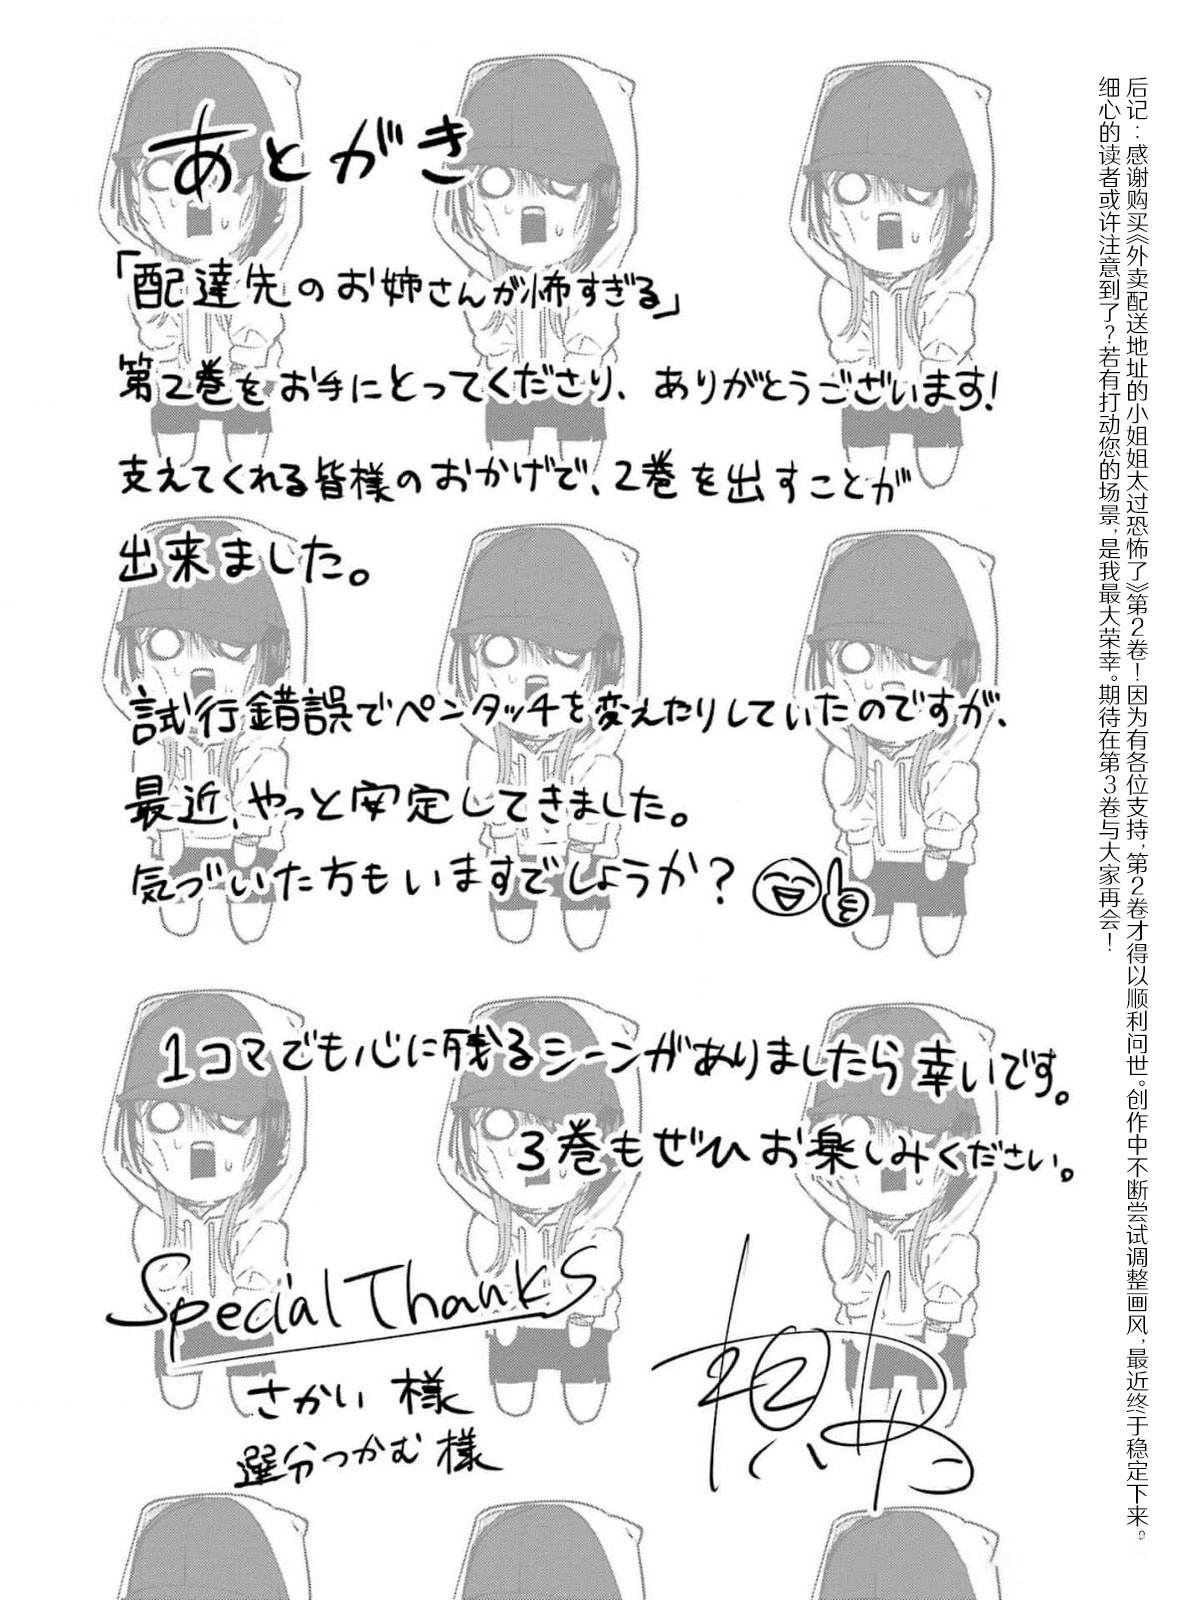 あとがき
「配達先のお姉さんが怖すぎる」
第2巻をお手にとってくださり、ありがとうございます!
支えてくれる皆様のおかげで、2巻を出すことが
出来ました。
試行錯誤でペンタッチを変えたりしていたのですが、
最近、やっと安定してきました。
気づいた方もいますでしょうか?
1コマでも心に残るシーンがありましたら幸いです。
3巻もぜひお楽しみください。
Special Thanks
さかい様
選分つかむ様
后记：感谢购买《外卖配送地址的小姐姐太过恐怖了》第2卷！因为有各位支持，第2卷才得以顺利问世。创作中不断尝试调整画风，最近终于稳定下来。
细心的读者或许注意到了？若有打动您的场景，是我最大荣幸。期待在第3卷与大家再会！